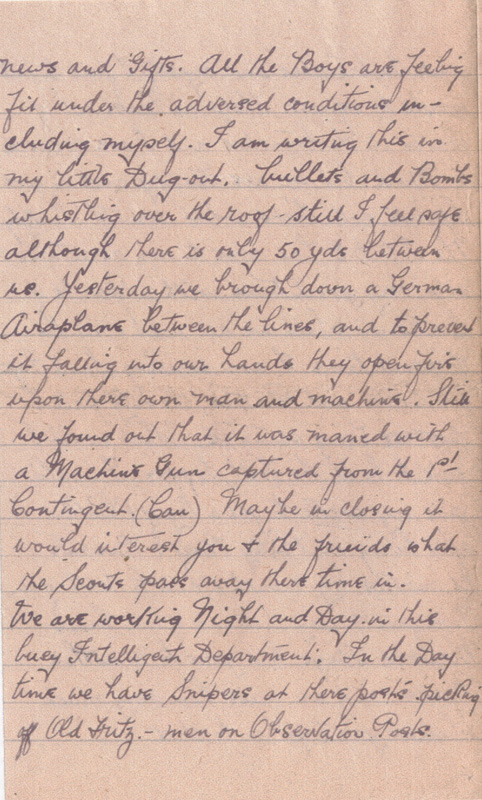 news and Gifts. All the Boys are feeling
fit under the adversed conditions in-
cluding myself. I am writng this in
my little Dug-out. bullets and Bombs
whistling over the roof - still I feel safe
although there is only 50 yds between
us. Yesterday we brough down a German
Airaplane between the lines, and to prevent
it falling into our hands they open fire
upon there own man and machine. Still
we found out that it was maned with
a Machine Gun captured from the 1st
Contingent. (Can) Maybe in closing it
would interest you & the friends what
the Scouts pass away there time in.
We are working Night and Day in this
busy Intelligent Department. In the Day
time we have Snipers at there posts picking
off Old Fritz. - men on Observation Posts.